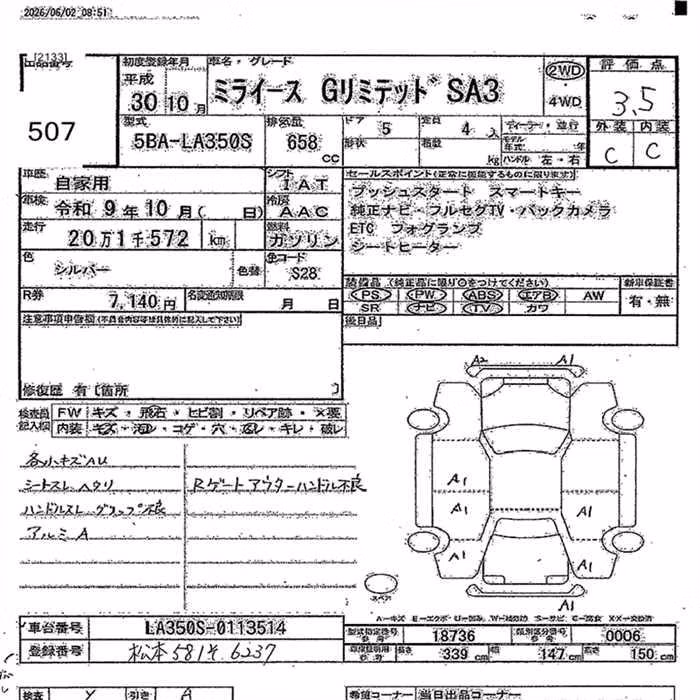 2026/06/02 08:51
[2133]
507
初度登録年月
平成
30 10 月
車名・グレード
ミライース GリミテッドSA3
2WD
・
4WD
評価点
3.5
外装 内装
C C
型式
5BA-LA350S
排気量
658
CC
ドア
5
定員
4 人
形状
積載
kg
ディーラー・並行
モデル
年式 年
ハンドル 左・右
車歴
自家用
シフト
IAT
車検
令和 9年 10月( 日)
冷房
AAC
走行
20万1千572 km
燃料
ガソリン
色
シルバー
色替
色コード
S28
R券
7,140円
名変通知期限
月 日
セールスポイント(正常に機能するものに限ります)
プッシュスタート スマートキー
純正ナビ・フルセグTV・バックカメラ
ETC フォグランプ
シートヒーター
装備品 (純正品に限り○をつけてください)
PS PW ABS エアB AW
SR ナビ TV カワ
新車保証書
有・無
後日品
注意事項申告欄(不具合内容等は具体的に記入して下さい)
修復歴 有〔箇所 〕
検査員
記入欄
FW キズ・飛石・ヒビ割・リペア跡・×要
内装
コゲ・穴
キレ・破レ
各小キズAU
シートスレ ヘタリ
Rゲートアウターハンドル不良
ハンドルスレ グリップ不良
アルミA
A2 A1
A1
A1 A1
A1 A1
A1
スペア
A-キズ E-エクボ U-凹み W-波効跡 S-サビ C-腐食 XX-交換済
車台番号
LA350S-0113514
登録番号
松本581そ6237
型式指定番号
18736
類別区分番号
0006
長さ 339 cm
幅 147 cm
高さ 150 cm
検査 Y
引き A
希望コーナー
当日出品コーナー